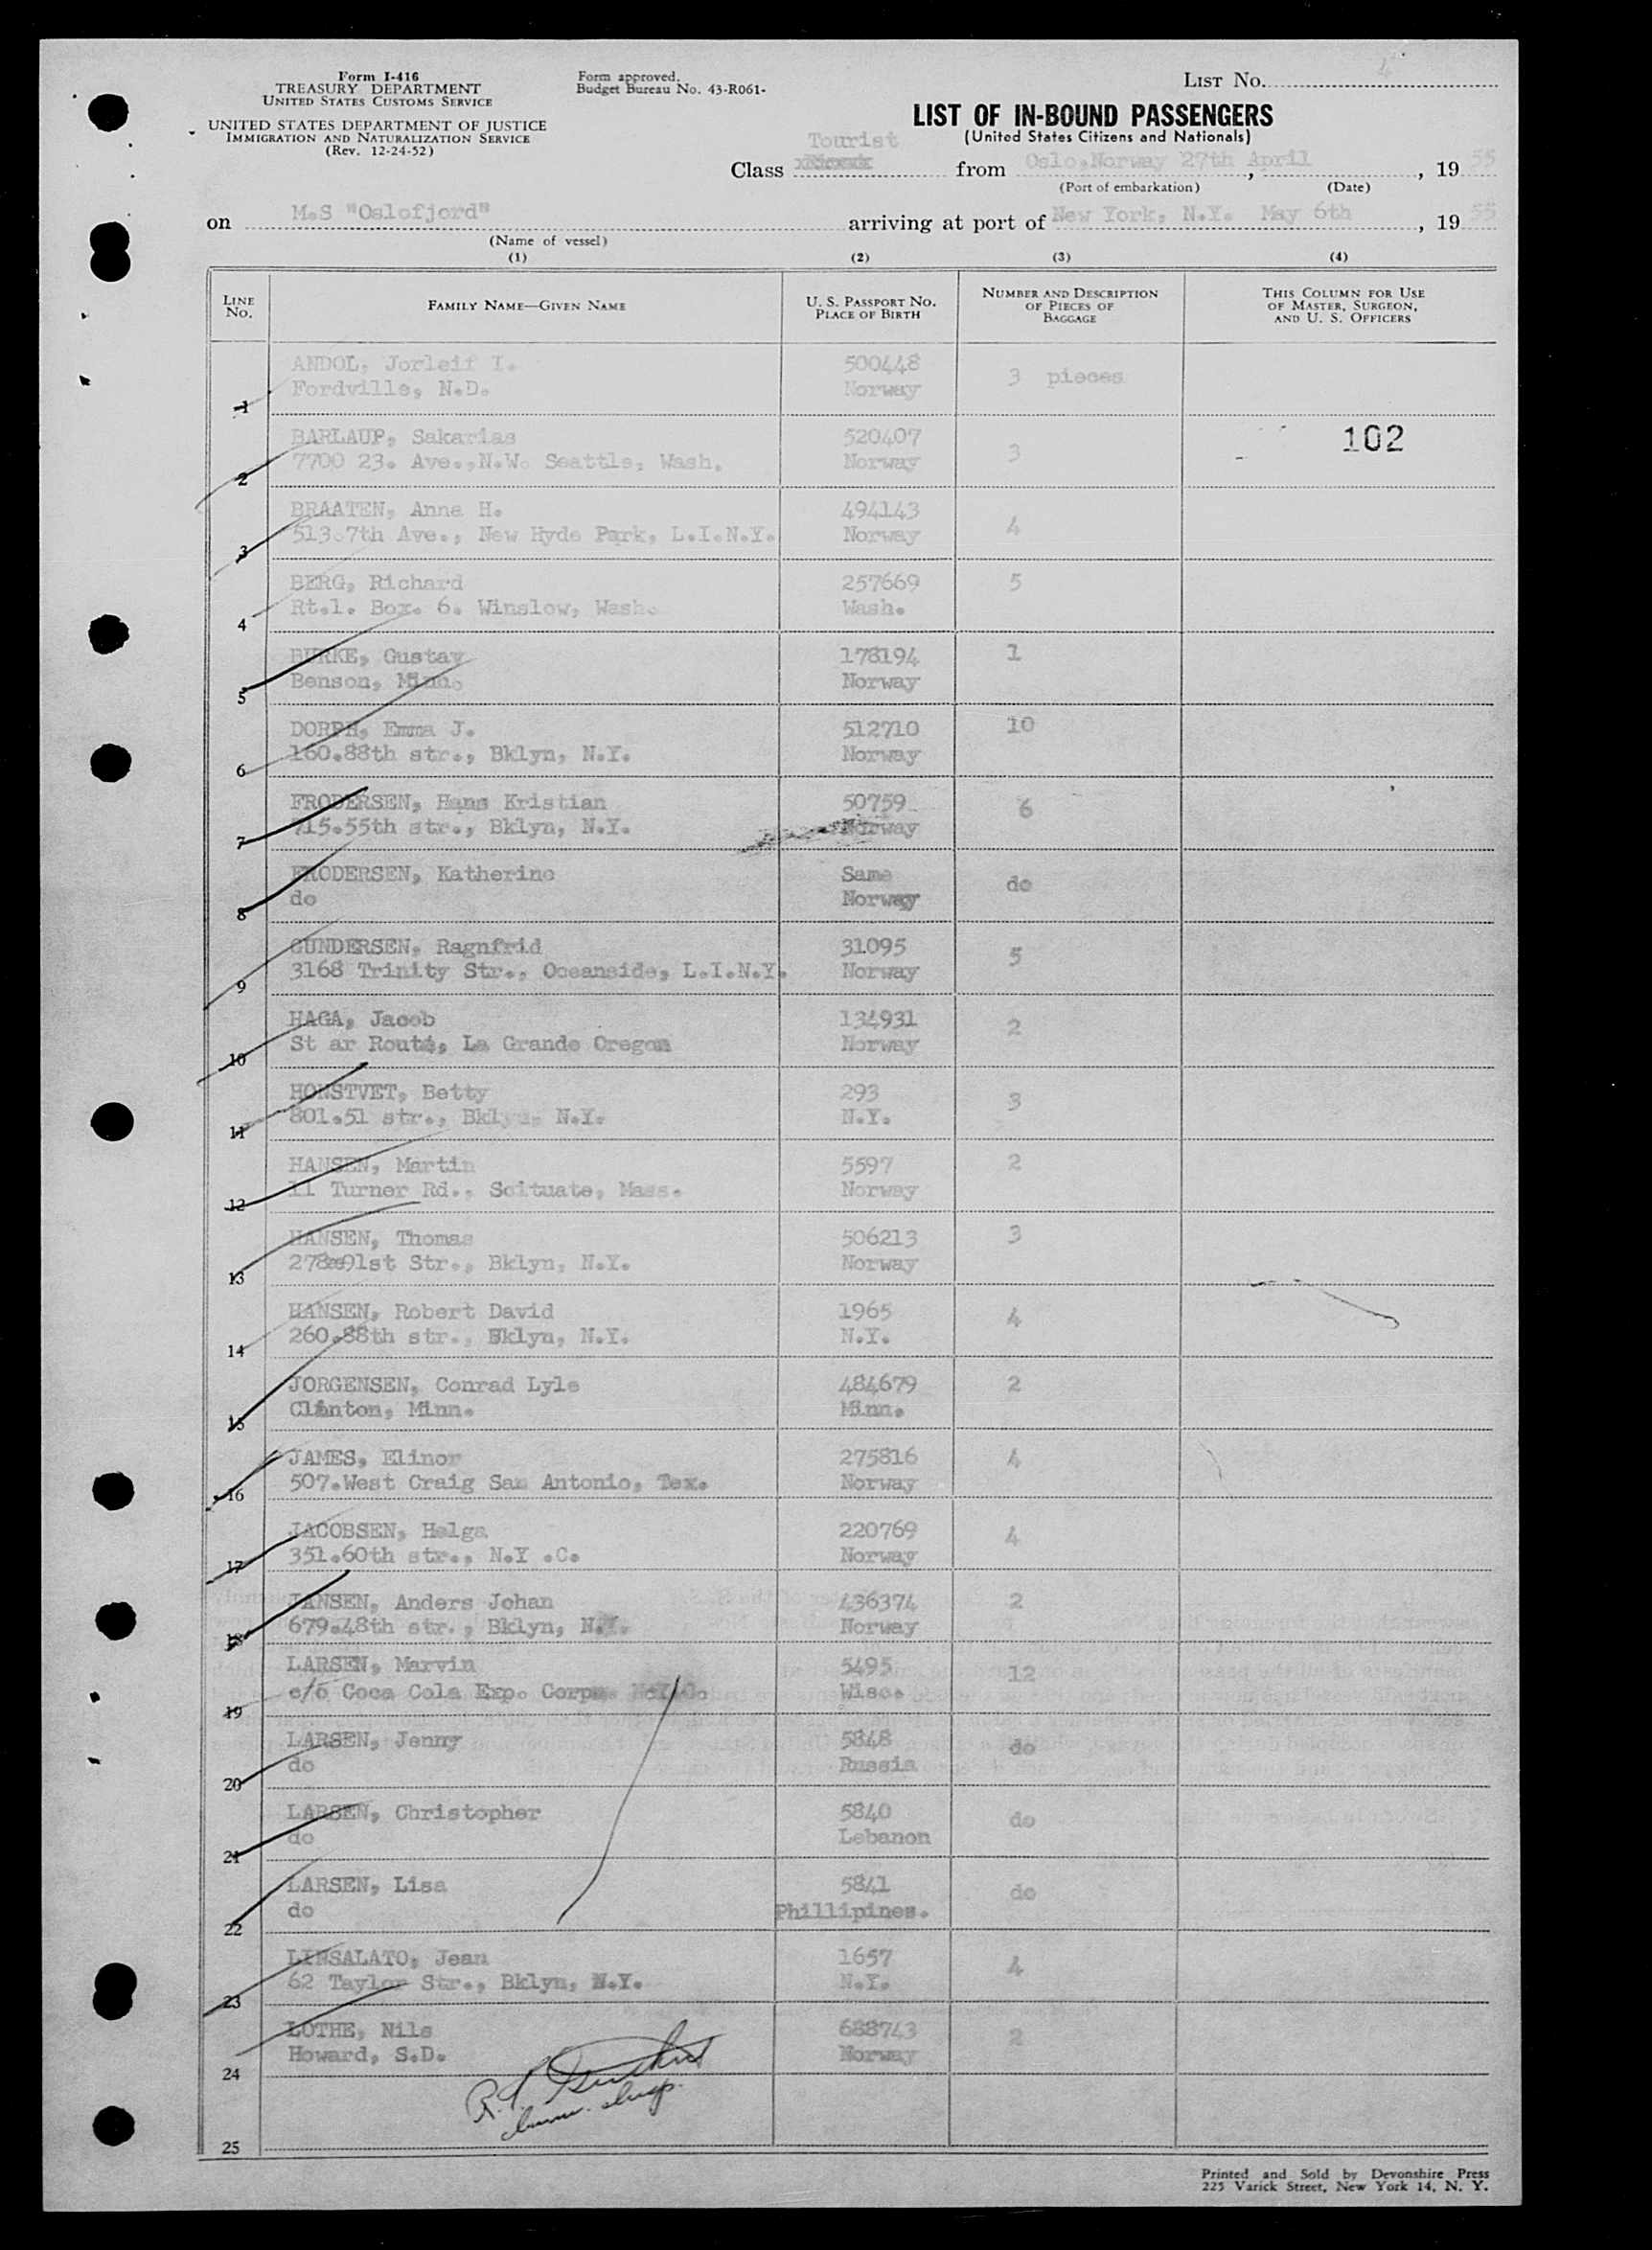 Form I-416
TREASURY DEPARTMENT
UNITED STATES CUSTOMS SERVICE
UNITED STATES DEPARTMENT OF JUSTICE
IMMIGRATION AND NATURALIZATION SERVICE
(Rev. 12-24-52)
Form approved.
Budget Bureau No. 43-R061-
LIST NO. 4
LIST OF IN-BOUND PASSENGERS
(United States Citizens and Nationals)
Tourist
Class from Oslo, Norway 27th April, 1955
(Port of embarkation) (Date)
on M.S "Oslofjord" arriving at port of New York, N.Y. May 6th, 1955
(Name of vessel)
(1) (2) (3) (4)
LINE No. FAMILY NAME—GIVEN NAME U. S. PASSPORT NO. PLACE OF BIRTH NUMBER AND DESCRIPTION OF PIECES OF BAGGAGE THIS COLUMN FOR USE OF MASTER, SURGEON, AND U. S. OFFICERS
ANDOL, Jorleif I. 500448 3 pieces
1 Fordville, N.D. Norway
BARLAUP, Sakarias 520407 3 102
2 7700 23. Ave.,N.W. Seattle, Wash. Norway
BRAATEN, Anna H. 494143 4
3 513.7th Ave., New Hyde Park, L.I.N.Y. Norway
BERG, Richard 257669 5
4 Rt.1. Box. 6. Winslow, Wash. Wash.
BURKE, Gustav 178194 1
5 Benson, Minn. Norway
DORPH, Emma J. 512710 10
6 160.88th str., Bklyn, N.Y. Norway
FRODERSEN, Hans Kristian 50759 6
7 715.55th str., Bklyn, N.Y. Norway
FRODERSEN, Katherine Same do
8 do Norway
GUNDERSEN, Ragnfrid 31095 5
9 3168 Trinity Str., Oceanside, L.I.N.Y. Norway
HAGA, Jacob 134931 2
10 St ar Route, La Grande Oregon Norway
HONSTVET, Betty 293 3
11 801.51 str., Bklyn, N.Y. N.Y.
HANSEN, Martin 5597 2
12 11 Turner Rd., Scituate, Mass. Norway
HANSEN, Thomas 506213 3
13 278 91st Str., Bklyn, N.Y. Norway
HANSEN, Robert David 1965 4
14 260.88th str., Bklyn, N.Y. N.Y.
JORGENSEN, Conrad Lyle 484679 2
15 Clinton, Minn. Minn.
JAMES, Elinor 275816 4
16 507.West Craig San Antonio, Tex. Norway
JACOBSEN, Helga 220769 4
17 351.60th str., N.Y .C. Norway
JANSEN, Anders Johan 436374 2
18 679.48th str., Bklyn, N.Y. Norway
LARSEN, Marvin 5495 12
19 c/o Coca Cola Exp. Corp. N.Y.C. Wisc.
LARSEN, Jenny 5848 do
20 do Russia
LARSEN, Christopher 5840 do
21 do Lebanon
LARSEN, Lisa 5841 do
22 do Phillipines.
LINSALATO, Jean 1657 4
23 62 Taylor Str., Bklyn, N.Y. N.Y.
LOTHE, Nils 688743 2
24 Howard, S.D. Norway
25
Printed and Sold by Devonshire Press
225 Varick Street, New York 14, N. Y.